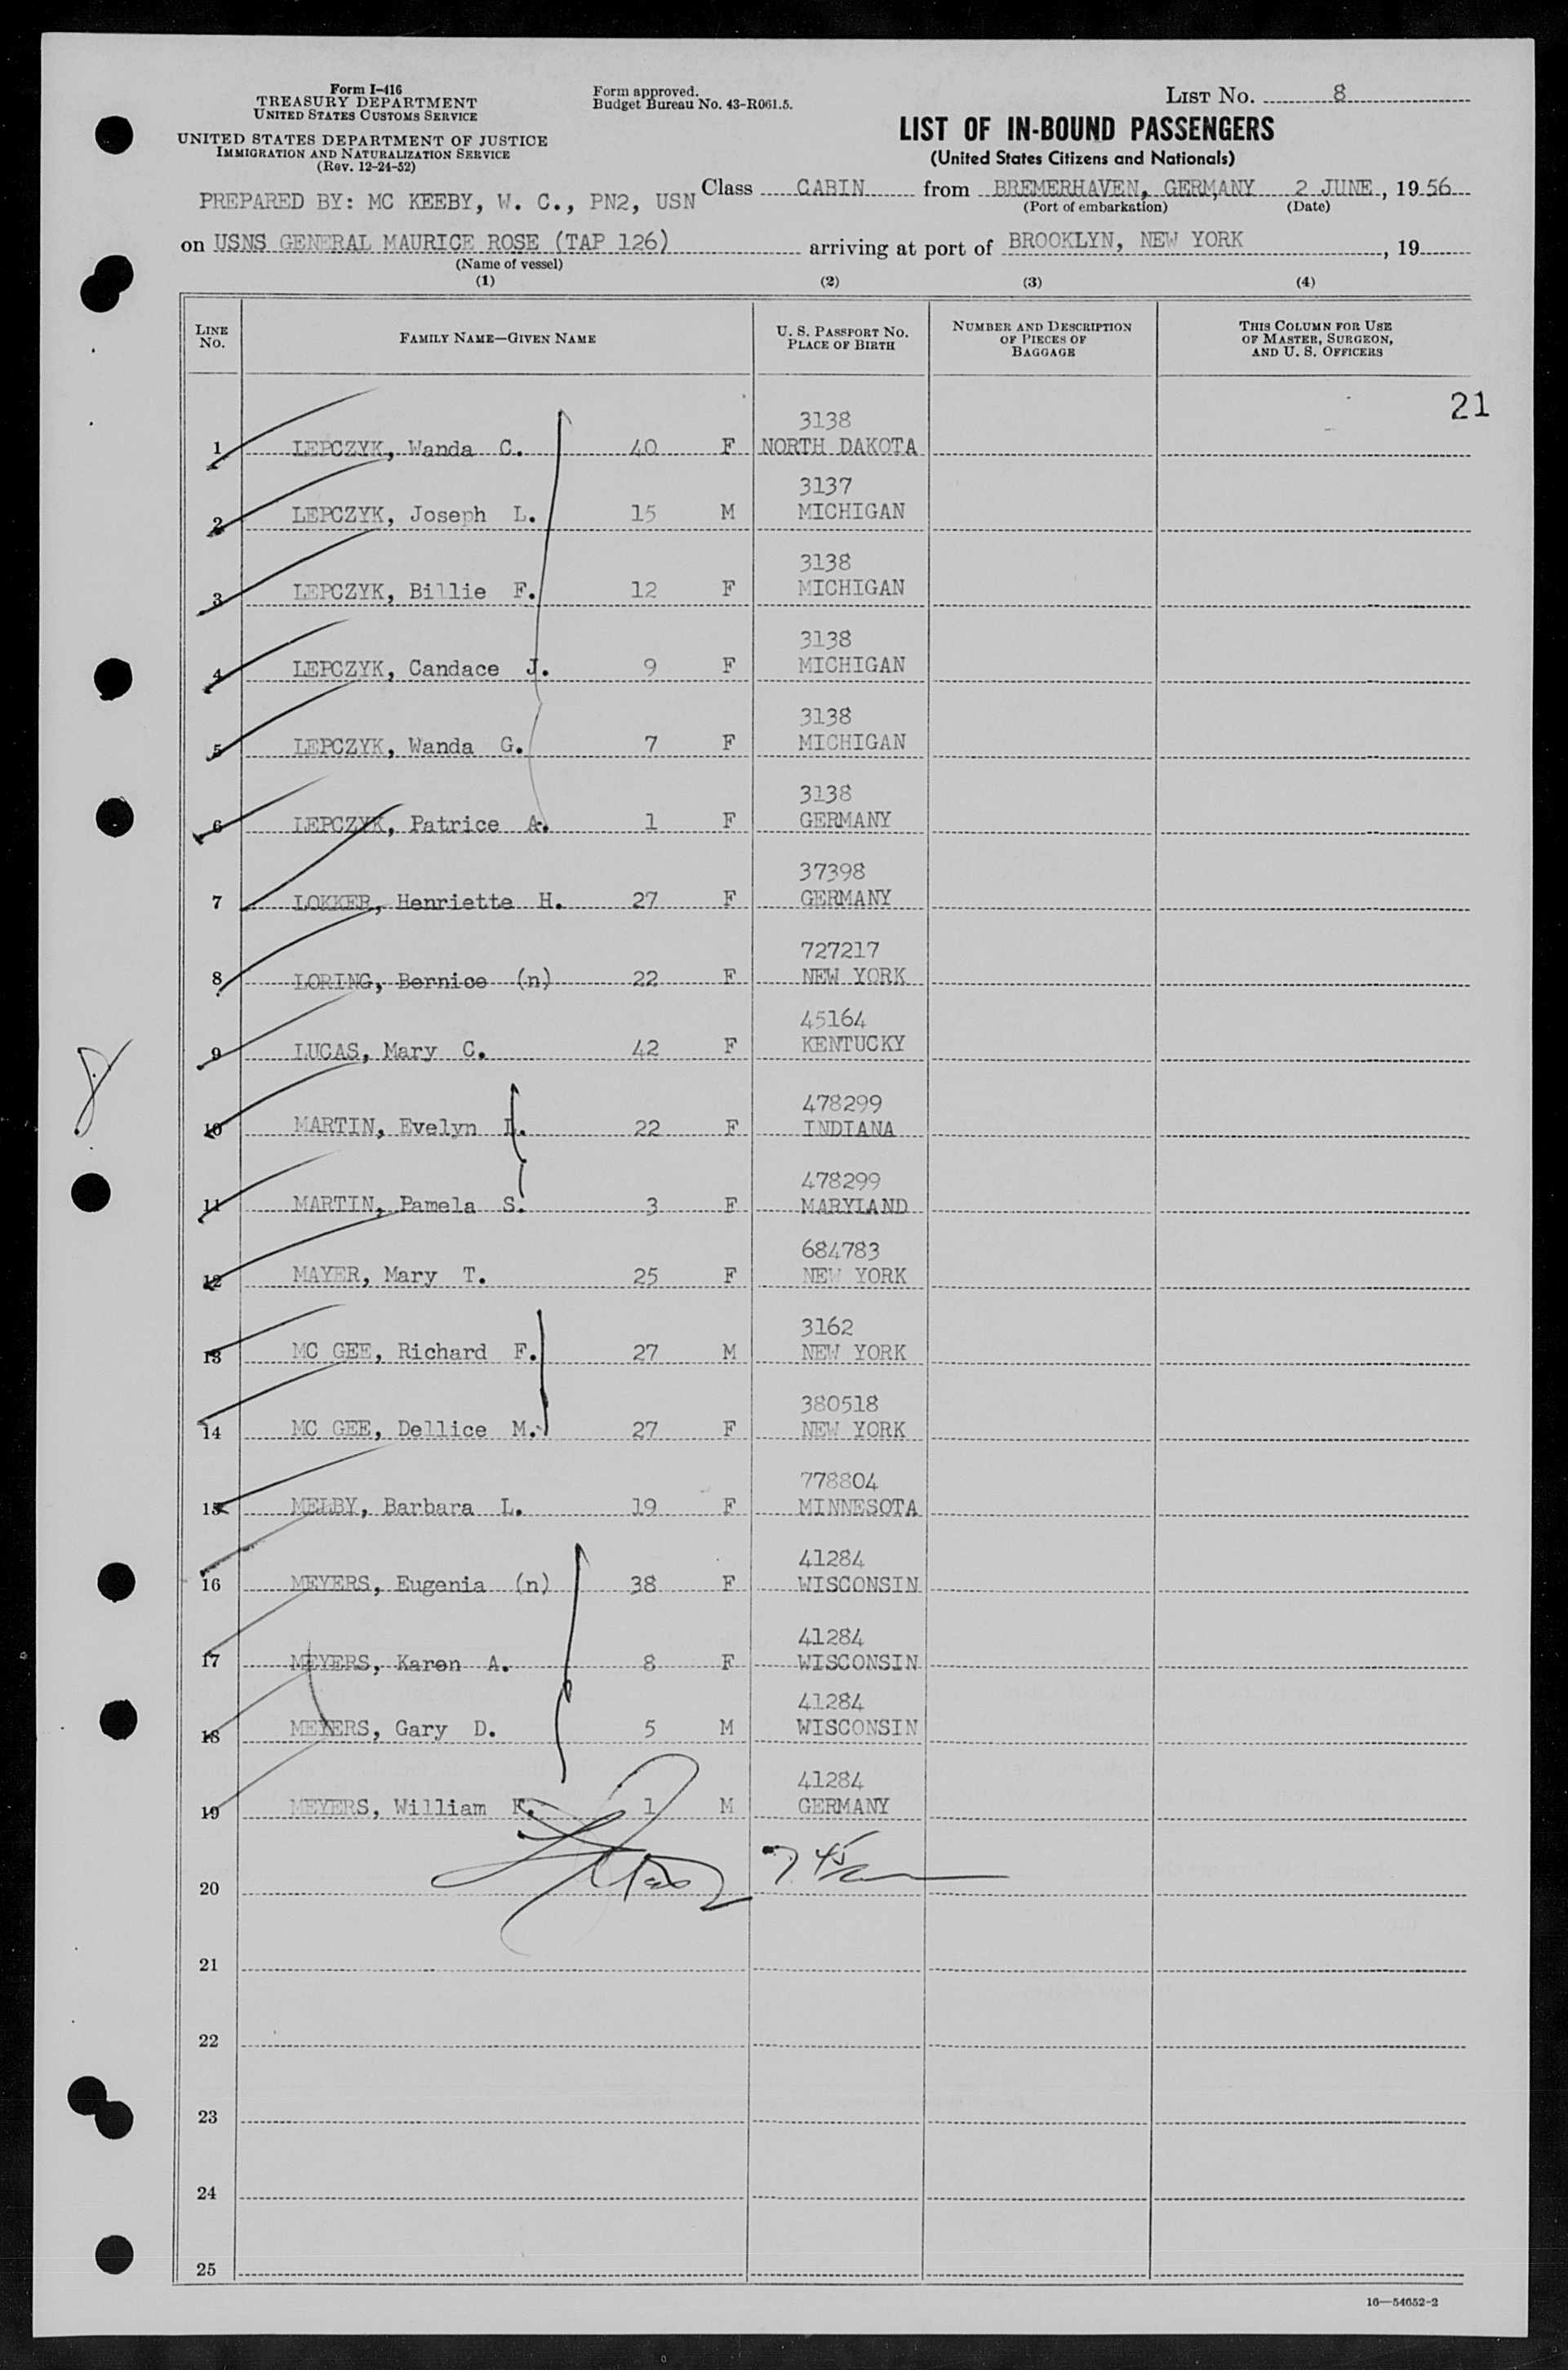 Form I-416
TREASURY DEPARTMENT
UNITED STATES CUSTOMS SERVICE
UNITED STATES DEPARTMENT OF JUSTICE
IMMIGRATION AND NATURALIZATION SERVICE
(Rev. 12-24-52)
Form approved.
Budget Bureau No. 43-R061.5.
LIST No. 8
LIST OF IN-BOUND PASSENGERS
(United States Citizens and Nationals)
PREPARED BY: MC KEEBY, W. C., PN2, USN
Class CABIN from BREMERHAVEN, GERMANY 2 JUNE, 1956
(Port of embarkation) (Date)
on USNS GENERAL MAURICE ROSE (TAP 126) arriving at port of BROOKLYN, NEW YORK, 19
(Name of vessel)
(1) (2) (3) (4)
LINE No. FAMILY NAME—GIVEN NAME U. S. PASSPORT No. PLACE OF BIRTH NUMBER AND DESCRIPTION OF PIECES OF BAGGAGE THIS COLUMN FOR USE OF MASTER, SURGEON, AND U. S. OFFICERS
21
3138
1 LEPCZYK, Wanda C. 40 F NORTH DAKOTA
3137
2 LEPCZYK, Joseph L. 15 M MICHIGAN
3138
3 LEPCZYK, Billie F. 12 F MICHIGAN
3138
4 LEPCZYK, Candace J. 9 F MICHIGAN
3138
5 LEPCZYK, Wanda G. 7 F MICHIGAN
3138
6 LEPCZYK, Patrice A. 1 F GERMANY
37398
7 LOKKER, Henriette H. 27 F GERMANY
727217
8 LORING, Bernice (n) 22 F NEW YORK
45164
9 LUCAS, Mary C. 42 F KENTUCKY
478299
10 MARTIN, Evelyn L. 22 F INDIANA
478299
11 MARTIN, Pamela S. 3 F MARYLAND
684783
12 MAYER, Mary T. 25 F NEW YORK
3162
13 MC GEE, Richard F. 27 M NEW YORK
380518
14 MC GEE, Dellice M. 27 F NEW YORK
778804
15 MELBY, Barbara L. 19 F MINNESOTA
41284
16 MEYERS, Eugenia (n) 38 F WISCONSIN
41284
17 MEYERS, Karen A. 8 F WISCONSIN
41284
18 MEYERS, Gary D. 5 M WISCONSIN
41284
19 MEYERS, William K. 1 M GERMANY
20
21
22
23
24
25
16—54652-2